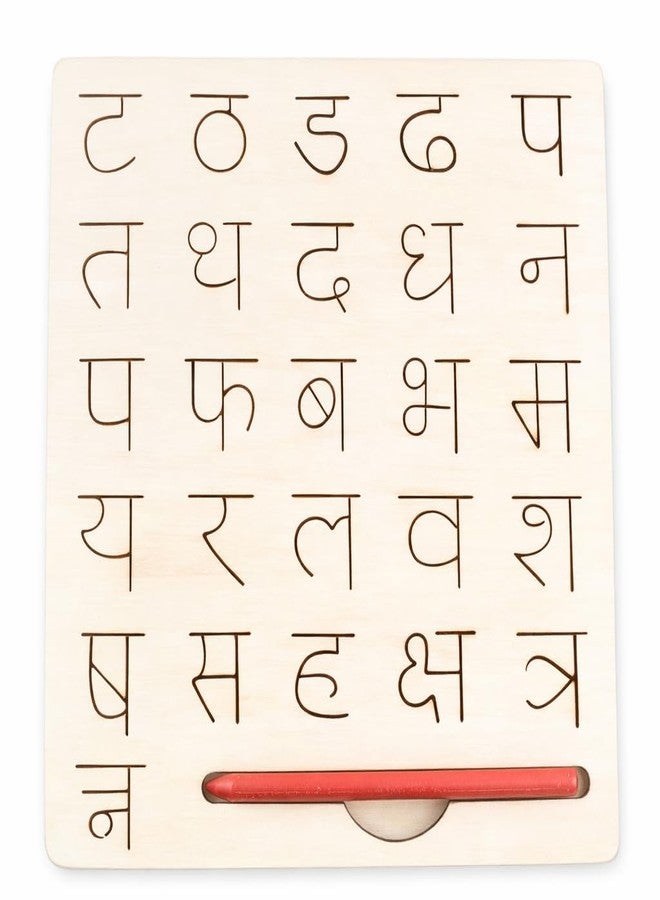 ट ठ ड ढ प
त थ द ध न
प फ ब भ म
य र ल व श
ष स ह क्ष त्र
ज्ञ